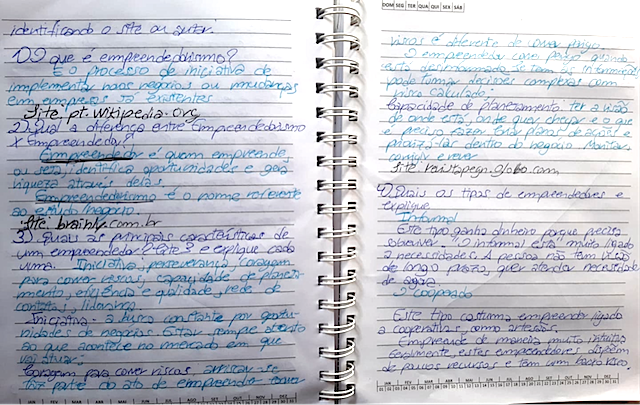 identificando o site ou autor.
1) O que é empreendedorismo?
É o processo de iniciativa de
implementar novos negócios ou mudanças
em empresas já existentes
Site. pt. wikipedia. org
2) Qual a diferença entre Empreendedorismo
x Empreendedor?
Empreendedor é quem empreende,
ou seja, identifica oportunidades e gera
riqueza através delas.
Empreendedorismo é o nome referente
ao estudo negócio.
Site. brainly. com.br
3) Quais as principais características de
um empreendedor? Cite 3 e explique cada
uma. Iniciativa, perseverança, coragem
para correr riscos, capacidade de planeja-
mento, eficiência e qualidade, rede de
contatos, liderança
Iniciativa - a busca constante por oportu-
nidades de negócios. Estar sempre atento
ao que acontece no mercado em que
vai atuar;
Coragem para correr riscos arriscar-se
faz parte do ato de empreender correr
DOM SEG TER QUA QUI SEX SÁB
riscos é diferente de correr perigo.
O empreendedor corre perigo quando
está
pode tomar decisões complexas com
risco calculado;
Capacidade de planejamento: ter a visão
de onde está, onde quer chegar e o que
é preciso fazer. Criar planos de ações e
priorizá-las dentro do negócio. Monitorar,
corrigir e rever
Site revistapegn.globo.com
4) Quais os tipos de empreendedores e
explique
Informal
Este tipo ganha dinheiro porque precisa
sobreviver. "O informal está muito ligado
a necessidades. A pessoa não tem visão
de longo prazo, quer atender necessidade
de agora
O cooperado
Este tipo costuma empreender ligado
a cooperativas, como artesãos.
Empreende de maneira muito intuitiva
Geralmente, estes empreendedores dispõem
de poucos recursos e tem um baixo risco.
JAN FEV MAR ABR MAI JUN JUL AGO SET OUT NOV DEZ
JAN FEV MAR ABR MAI JUN JUL AGO SET OUT NOV DEZ